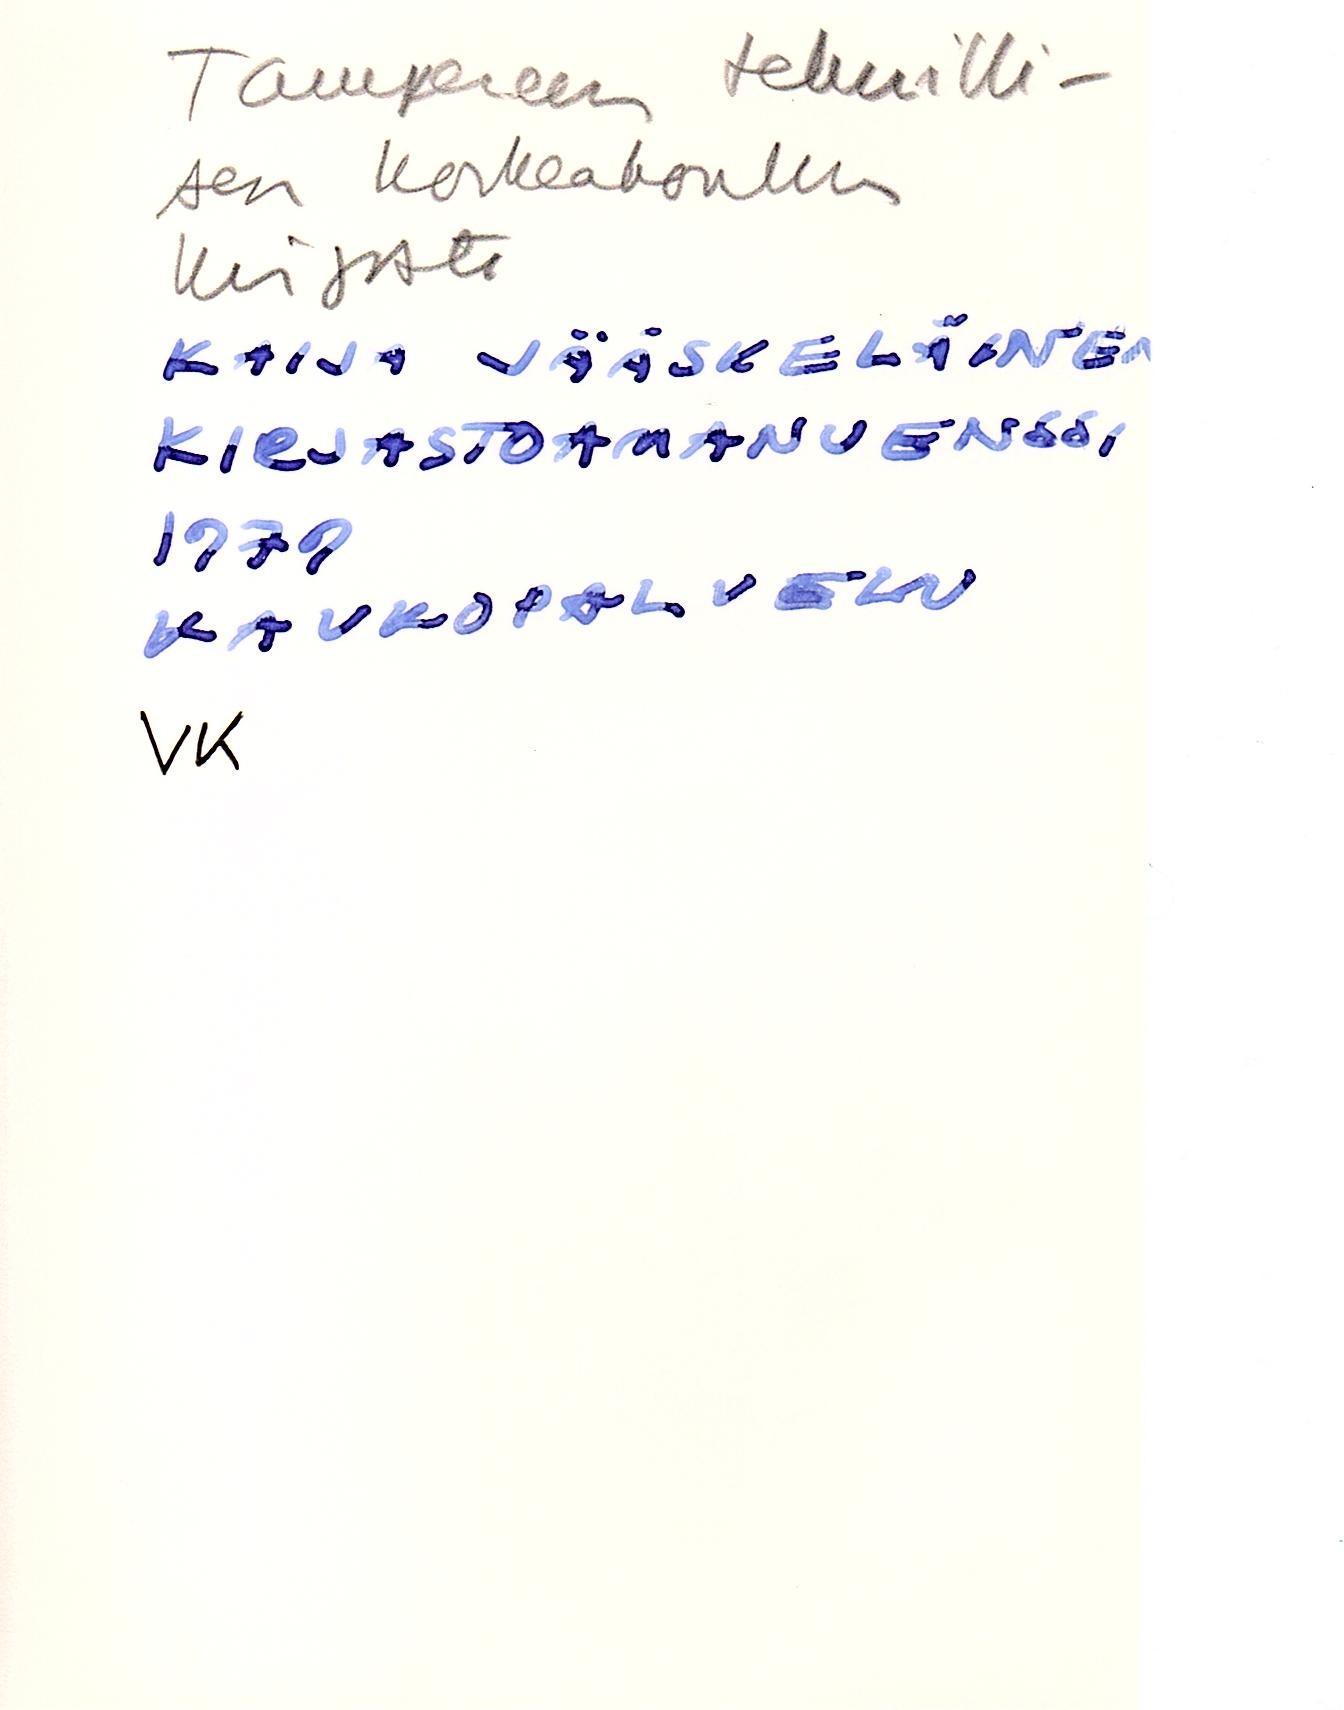 Tampereen teknilli-
sen korkeakoulun
kirjasto
KAIJA JÄÄSKELÄINEN
KIRJASTOAMANUENSSI
1979
KAUKOPALVELU
VK